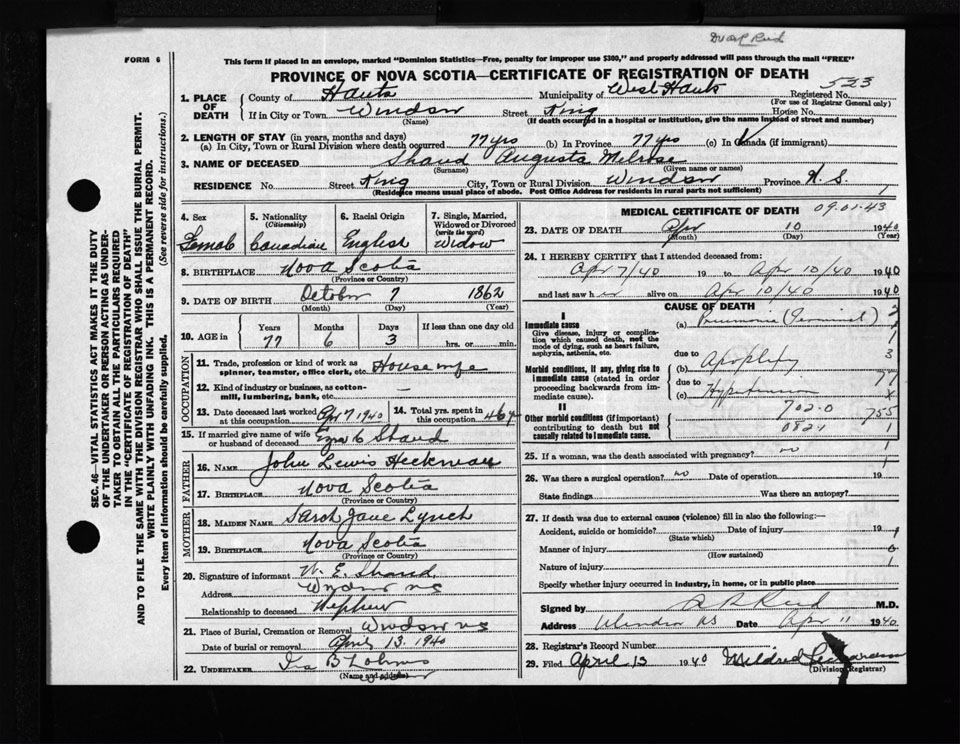 FORM 6
This form if placed in an envelope, marked "Dominion Statistics—Free, penalty for improper use $300," and properly addressed will pass through the mail "FREE"
PROVINCE OF NOVA SCOTIA—CERTIFICATE OF REGISTRATION OF DEATH
523
1. PLACE OF DEATH
County of Hants Municipality of West Hants Registered No.
(For use of Registrar General only)
If in City or Town Windsor Street King House No.
(Name) (If death occurred in a hospital or institution, give the name instead of street and number)
2. LENGTH OF STAY (in years, months and days)
(a) In City, Town or Rural Division where death occurred 77 yrs (b) In Province 77 yrs (c) In Canada (if immigrant)
3. NAME OF DECEASED Shand Augusta Melrose
(Surname) (Given name or names)
RESIDENCE No. Street King City, Town or Rural Division Windsor Province N. S.
(Residence means usual place of abode. Post Office Address for residents in rural parts not sufficient) 1
4. Sex Female
5. Nationality (Citizenship) Canadian
6. Racial Origin English
7. Single, Married, Widowed or Divorced (write the word) Widow
8. BIRTHPLACE Nova Scotia
(Province or Country)
9. DATE OF BIRTH October 7 1862
(Month) (Day) (Year)
10. AGE in Years Months Days If less than one day old
77 6 3 hrs. or min.
OCCUPATION
11. Trade, profession or kind of work as spinner, teamster, office clerk, etc. Housewife
12. Kind of industry or business, as cotton-mill, lumbering, bank, etc. —
13. Date deceased last worked at this occupation Apr 7 1940
14. Total yrs. spent in this occupation 46 y
15. If married give name of wife or husband of deceased Ezra C Shand
FATHER
16. NAME John Lewis Heckman
17. BIRTHPLACE Nova Scotia
(Province or Country)
MOTHER
18. MAIDEN NAME Sarah Jane Lynch
19. BIRTHPLACE Nova Scotia
(Province or Country)
20. Signature of informant W. E. Shand
Address Windsor NS
Relationship to deceased Nephew
21. Place of Burial, Cremation or Removal Windsor NS
Date of burial or removal April 13, 1940
22. UNDERTAKER
(Name and address)
MEDICAL CERTIFICATE OF DEATH 09.01.43
23. DATE OF DEATH Apr 10 1940
(Month) (Day) (Year)
24. I HEREBY CERTIFY that I attended deceased from:
Apr 7/40 19 to Apr 10/40 1940
and last saw her alive on Apr 10/40 1940
CAUSE OF DEATH
I
Immediate cause
Give disease, injury or complication which caused death, not the mode of dying, such as heart failure, asphyxia, asthenia, etc.
(a) Pneumonia (Terminal)
due to
Morbid conditions, if any, giving rise to immediate cause (stated in order proceeding backwards from immediate cause).
(b) Apoplexy 3
due to 77
(c) Hypertension x
II
702.0 755
Other morbid conditions (if important) contributing to death but not causally related to immediate cause.
082.1 1
25. If a woman, was the death associated with pregnancy? no 1
26. Was there a surgical operation? no Date of operation 19
State findings Was there an autopsy?
27. If death was due to external causes (violence) fill in also the following:—
Accident, suicide or homicide? Date of injury 19
(State which)
Manner of injury 0
(How sustained)
Nature of injury 1
Specify whether injury occurred in industry, in home, or in public place
Signed by Reid M.D.
Address Windsor NS Date Apr 11 1940
28. Registrar's Record Number
29. Filed April 13 1940 Mildred
(Division Registrar)
SEC. 46—VITAL STATISTICS ACT MAKES IT THE DUTY
OF THE UNDERTAKER OR PERSON ACTING AS UNDER-
TAKER TO OBTAIN ALL THE PARTICULARS REQUIRED
IN THE "CERTIFICATE OF REGISTRATION OF DEATH"
AND TO FILE THE SAME WITH THE DIVISION REGISTRAR WHO SHALL ISSUE THE BURIAL PERMIT.
WRITE PLAINLY WITH UNFADING INK. THIS IS A PERMANENT RECORD.
Every item of information should be carefully supplied. (See reverse side for instructions.)